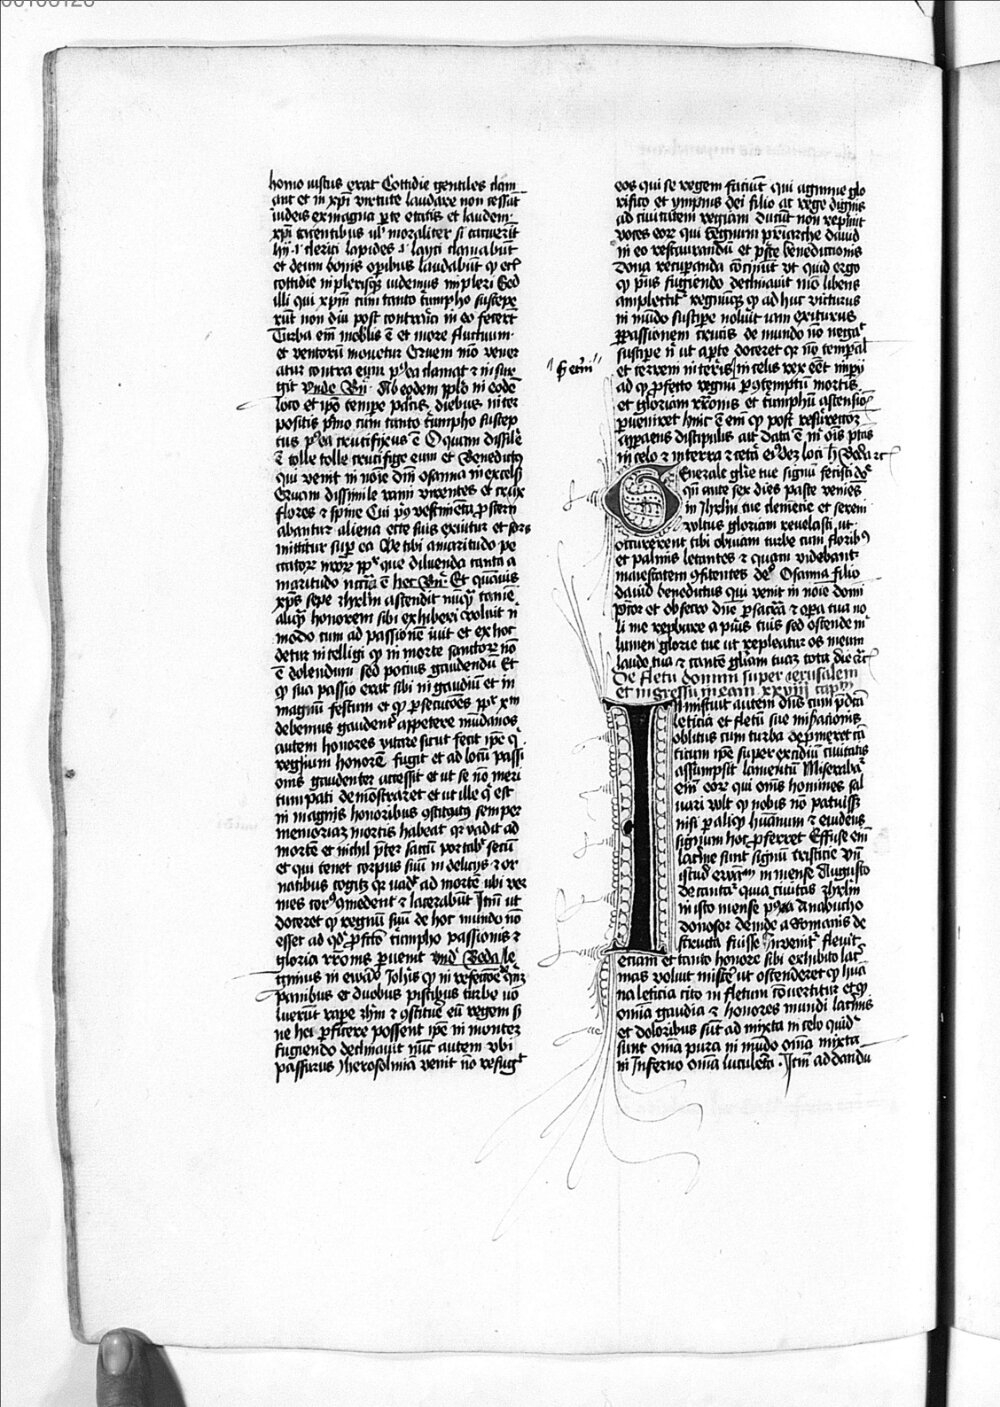 homo iustus erat Cottidie gentiles clam
ant et in xpi virtute laudare non cessāt
iudeis ex magna pte etatis et laudem
xpi tacentibus ul' moraliter si tacuerīt
hij .i. clerici lapides .i. layci clamabūt
et deum bonis opibus laudabūt
cottidie in plerisqȝ videmus impleri Sed
illi qui xpm cum tanto triumpho suscepe
rūt non diu post contraria in eo fecerūt
Turba em mobilis ē et more fluctuum
et ventorū mouetur Eruem mō vener
atur contra eum pea clamat ⁊ insur
git Vnde Bn Ab eodem pplo in eodē
loco et ipo tempe paucis diebus inter
positis pmo cum tanto triumpho suscep
tus pea crucifixus ē O quam dissile
ē tolle tolle crucifige eum et Benedictus
qui venit in noīe dnī osanna in excelsis
Eruam dissimile rami virentes et crux
flores ⁊ spine Cui pus vestimēta pstern
abantur aliena ecce suis exuitur et sors
mittitur sup ea Ve tibi amaritudo pe
ccatorum nrorum ppt que diluenda tanta a
maritudo necessaria ē hec Bn Et quāuis
xps sepe Jhrlm ascendit nūqȝ tamē
aliqȝ honorem sibi exhiberi voluit n
modo cum ad passionē iuit et ex hoc
detur intelligi qȝ in morte sanctorum nō
ē dolendum sed pocius gaudendū Et
qȝ sua passio erat sibi in gaudiū et in
magnū festum et qȝ psecucōes ppt xm
debemus gaudentes appetere mūdanos
autem honores vitare sicut fecit ipe qȝ
regnum honorē fugit et ad locū passi
onis gaudenter accessit et ut se nō meri
tum pati demōstraret et ut ille qȝ est
in magnis honoribus constitutus semper
memoriam mortis habeat qȝ vadit ad
mortē et nichil pter saccū portabit secū
et qui tenet corpus suū in delicijs ⁊ or
natibus cogitet qȝ vadit ad mortē ubi ver
mes corpus comedent ⁊ lacerabūt Itm ut
doceret qȝ regnū suū de hoc mundo nō
esset ad qd pfecto triumpho passionis ⁊
gloria rrōnis puenit vnd Beda le
gimus in ewāgelio Johis qȝ in refectōe quinqȝ
panibus et duobus piscibus turbe vo
luerūt rape Jhm ⁊ constituē eū regem s
ne hec pficere possent ipe in montem
fugiendo declinauit nunc autem vbi
passurus Jherosolimā venit nō refugit
eos qui se regem faciūt qui agmine glo
rifico et ympnis dei filio ac rege dignis
ad ciuitatem regiam ducūt non reprimit
voces eorum qui regnum pmarche dauid
in eo restaurandū et psce benedictionis
dona recuperanda concinūt vt quid ergo
qȝ prius fugiendo declinauit mō libens
amplectitur regnūqȝ qȝ ad huc victurus
in mūdo suscipe noluit iam exiturus
p passionem crucis de mundo nō negat
suscipe n ut apte doceret qȝ nō temporal
et terreni in terris in celis rex eēt impij
ſ eciam
ad qȝ pfecto regnū p contemptū mortis
et gloriam rrōnis et triumphū ascensiōis
pueniret hinc ē em qȝ post resurrectōem
apparens discipulis ait Data ē m ois ptas
in celo ⁊ in terra ⁊ cetera eiusdem loci h Beda ⁊c
Generale glorie tue signū fecisti do
qui ante sex dies pasce veniēs
in Jhrlm tue clemētie et sereni
vultus gloriam reuelasti ut
occurrerent tibi obuiam turbe cum floribus
et palmis letantes ⁊ quam videbant
maiestatem cōfitentes deo Osanna filio
dauid benedictus qui venit in noīe domi
Precor et obsecro dne p sacra ⁊ opa tua no
li me reprobare a pueris tuis sed ostende m
lumen glorie tue ut repleatur os meum
laude tua ⁊ cantē gloriam tuam tota die ⁊c
De fletu domini super Jerusalem
et ingressu in eam xxviij capm
Inmiscuit autem dns cum pdcta
leticia et fletū sue miseracionis
oblitus cum turba depmeret ca
ticum ipe super excidiū ciuitatis
assumpsit lamentū Miserabat
em eorum qui omnes homines sal
uari volt qȝ nobis nō patuisset
nisi p aliqȝ humanum ⁊ euidens
signum hoc pferret Effuse em
lacrime sunt signū tristicie Vn
istud ewm in mense Augusto
decantatur quia ciuitas Jhrlm
in isto mense pea a nabucho
donosor deinde a Romanis de
structa fuisse inuenitur fleuit
eciam et tanto honore sibi exhibito lac
mas voluit miscē ut ostenderet qȝ hua
na leticia cito in fletum conuertitur et qȝ
omnia gaudia ⁊ honores mundi lacrimis
et doloribus sūt ad mixta in celo quid
sunt omīa pura in mūdo omīa mixta
in Inferno omīa luctulenta . Itm ad dandū